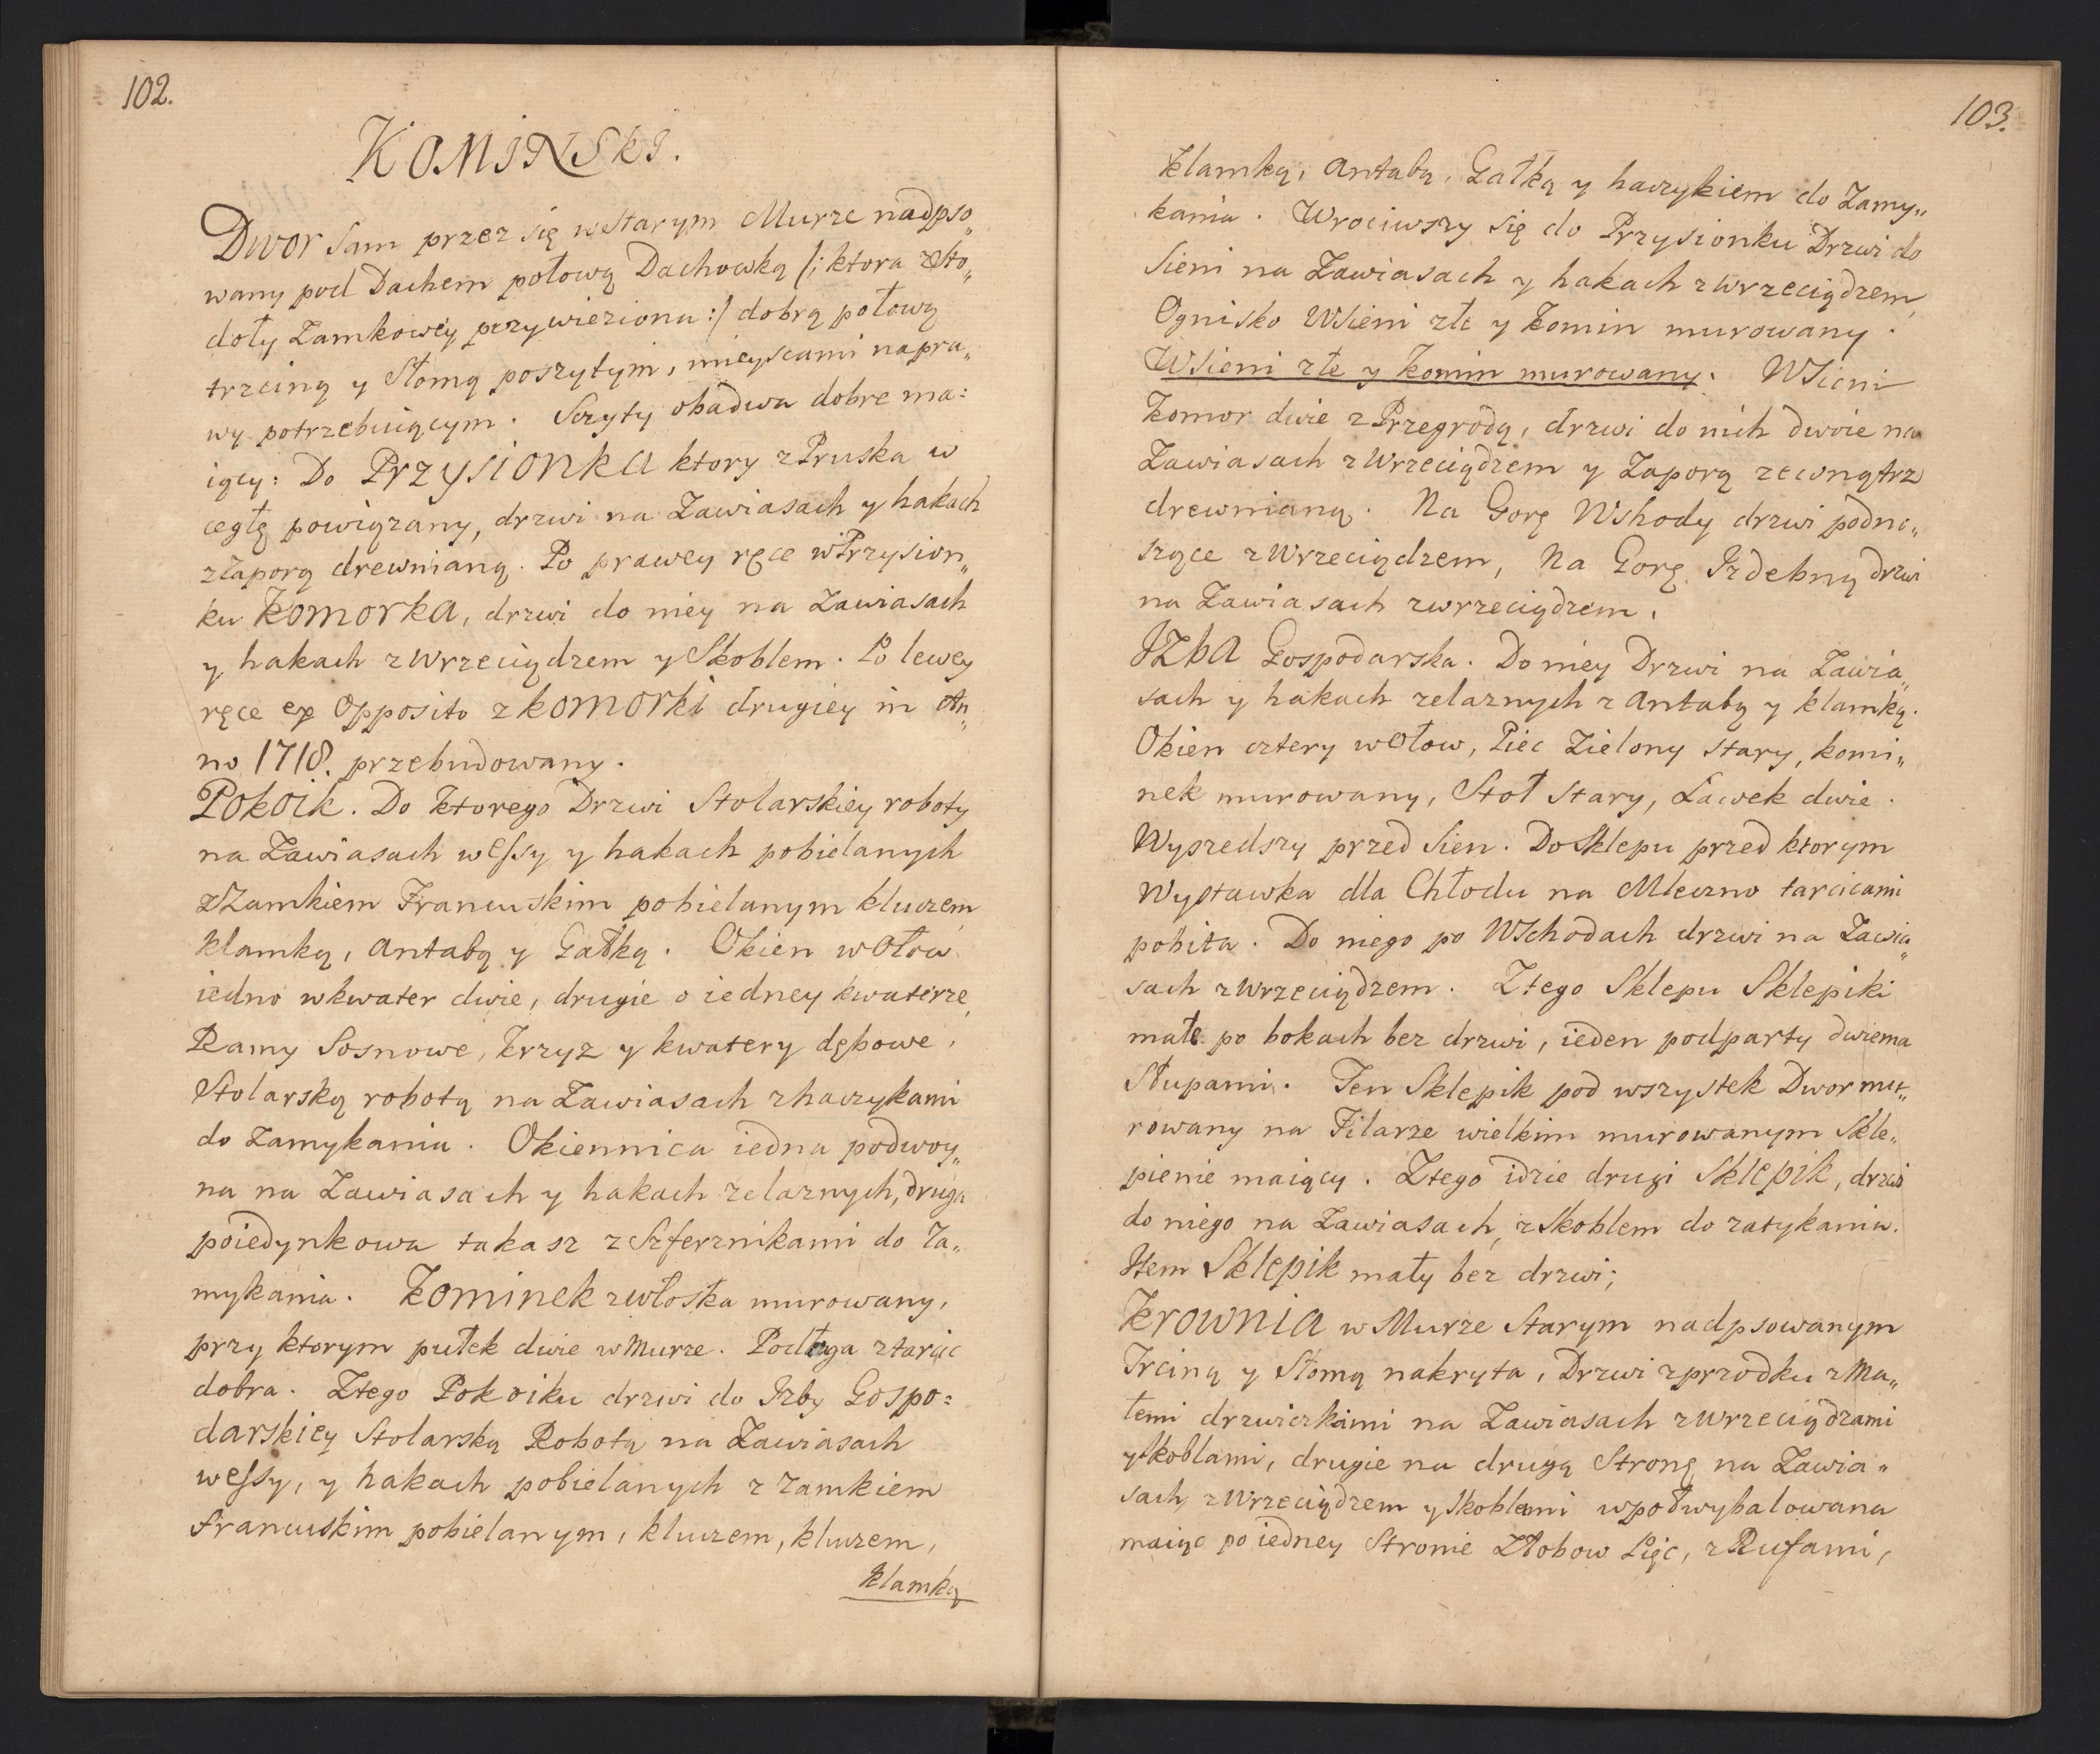 102.
KOMINSKI.
Dwor sam przez się w starym Murze nadpso„
wany pod Dachem połową Dachowką /: ktora zSto„
doły Zamkowey przywieziona :/ dobrą połową
trzciną y Słomą poszytym, mieyscami napra„
wy potrzebuiącym. Szyty obadwa dobre ma:
iący: Do Przysionka ktory z Pruska w
cegłę powiązany, drzwi na Zawiasach y hakach
z Zaporą drewnianą. Po prawey ręce w Przysion„
ku Komorka, drzwi do niey na zawiasach
y hakach z Wrzeciądzem y Skoblem. Po lewey
ręce ex Opposito z komorki drugiey in An„
no 1718. przebudowany.
Pokoik. Do ktorego Drzwi Stolarskiey roboty
na Zawiasach w essy y hakach pobielanych
z Zamkiem Francuskim pobielanym kluczem
klamką, antabą y Gałką. Okien w Ołow
iedno w kwater dwie, drugie o iedney kwaterze,
Ramy Sosnowe, krzyz y kwatery dębowe,
Stolarską robotą na Zawiasach z haczykami
do Zamykania. Okiennica iedna podwoy„
na na Zawiasach y hakach zelaznych, druga
poiedynkowa takasz z Szferznikami do Za„
mykania. Kominek zwłoska murowany,
przy ktorym pułek dwie w Murze. Podłoga z tarcic
dobra. Ztego Pokoiku drzwi do Izby Gospo:
darskiey Stolarską Robotą na Zawiasach
w essy, y hakach pobielanych z zamkiem
francuskim pobielanym, kluczem, kluczem,
klamką
103.
klamką, Antabą, Gałką y haczykiem do Zamy„
kania. Wrociwszy się do Przysionku Drzwi do
Sieni na Zawiasach y hakach z Wrzeciądzem,
Ognisko W Sieni złe y komin murowany.
W Sieni złe y komin murowany. W Sieni
Komor dwie z Przegrodą, drzwi do nich dwoie na
Zawiasach z Wrzeciądzem y Zaporą zewnątrz
drewnianą. Na Gorę Wshody drzwi podno„
szące z Wrzeciądzem, Na Gorę Izdebną drzwi
na Zawiasach z wrzeciądzem.
Izba Gospodarska. Do niey Drzwi na Zawia„
sach y hakach zelaznych z Antabą y klamką.
Okien cztery w Ołow, Piec Zielony stary, komi„
nek murowany, Stoł stary, Ławek dwie.
Wyszedszy przed Sien. Do Sklepu przed ktorym
Wystawka dla Chłodu na Mleczno tarcicami
pobita. Do niego po Wschodach drzwi na Zawia„
sach z Wrzeciądzem. Ztego Sklepu Sklepiki
małe po bokach bez drzwi, ieden podparty dwiema
Słupami. Ten Sklepik pod wszystek Dwor mu„
rowany na Filarze wielkim murowanym Skle„
pienie maiący. Ztego idzie drugi Sklepik, drzwi
do niego na Zawiasach, z Skoblem do zatykania.
Item Sklepik mały bez drzwi;
Krownia w Murze Starym nadpsowanym
Trciną y Słomą nakryta, Drzwi z przodku z Ma„
łemi drzwiczkami na Zawiasach z Wrzeciądzami
y Skoblami, drugie na drugą Stronę na Zawia„
sach, z Wrzeciądzem y Skoblami wpoł wybalowana
maiąc po iedney Stronie Złobow Pięc, z Rufami,